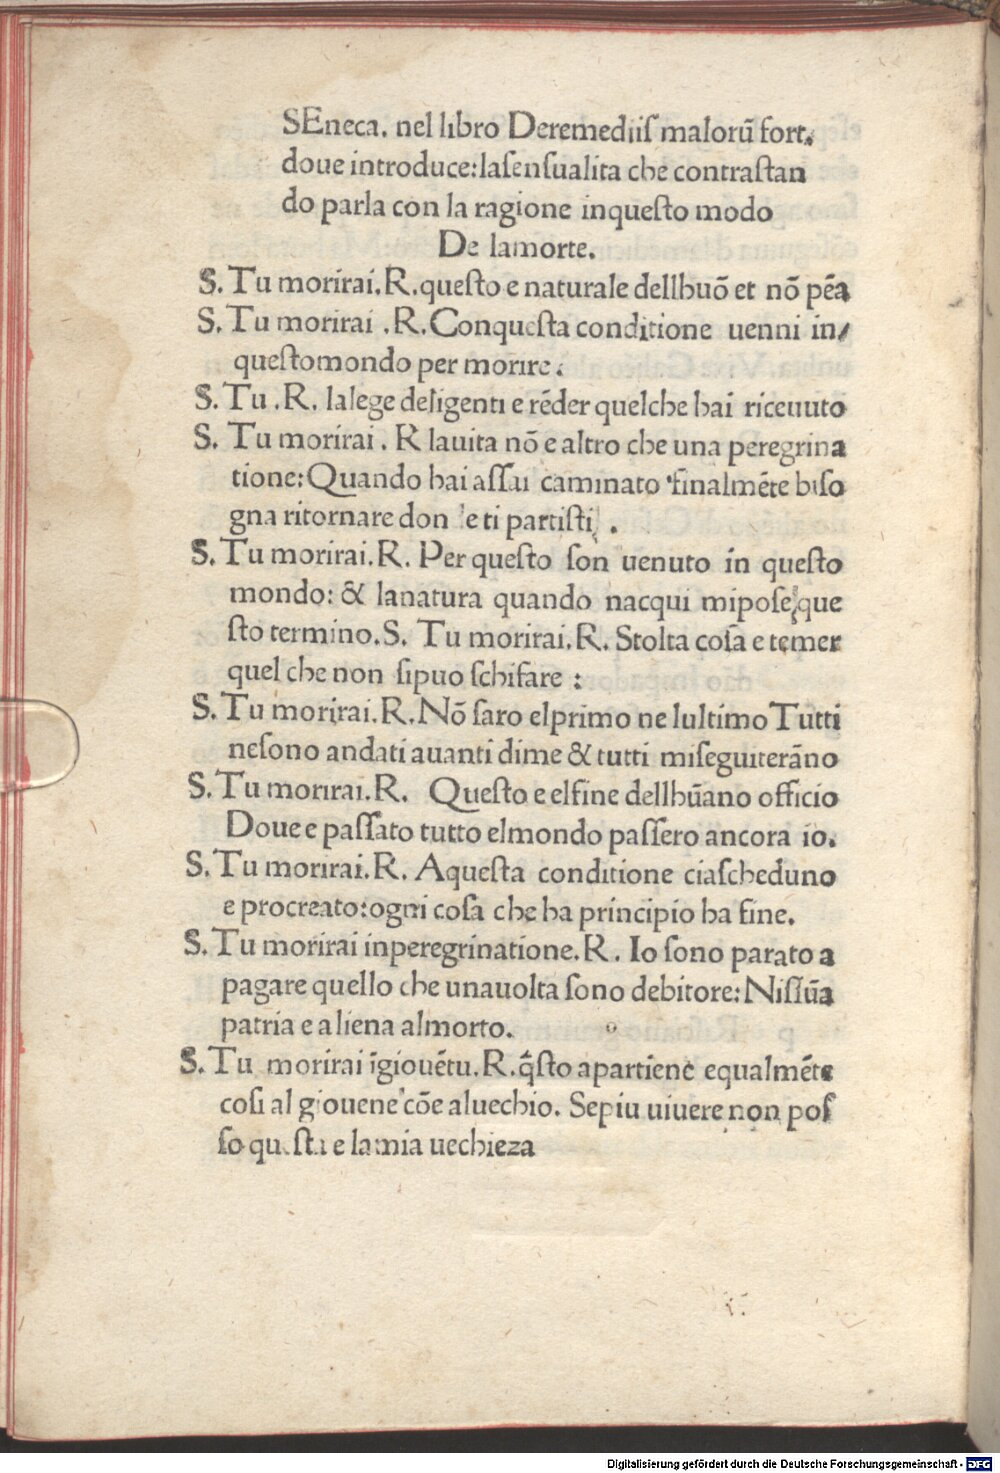 SEneca. nel libro Deremediis malorū fort.
doue introduce:lasensualita che contrastan
do parla con la ragione inquesto modo
De lamorte.
S. Tu morirai.R.questo e naturale dellhuō et nō pēa
S. Tu morirai .R.Conquesta conditione uenni in/
questomondo per morire.
S. Tu .R. lalege deligenti e rēder quelche hai riceuuto
S. Tu morirai . R lauita nō e altro che una peregrina
tione:Quando hai assai caminato finalmēte biso
gna ritornare don e ti partisti .
S. Tu morirai.R. Per questo son uenuto in questo
mondo: & lanatura quando nacqui mipose que
sto termino.S. Tu morirai.R. Stolta cosa e temer
quel che non sipuo schifare :
S. Tu morirai.R.Nō saro elprimo ne lultimo Tutti
nesono andati auanti dime & tutti miseguiterāno
S. Tu morirai.R. Questo e elfine dellhūano officio
Doue e passato tutto elmondo passero ancora io.
S. Tu morirai.R. Aquesta conditione ciascheduno
e procreato:ogni cosa che ha principio ha fine.
S. Tu morirai inperegrinatione.R. Io sono parato a
pagare quello che unauolta sono debitore:Nissūa
patria e aliena almorto.
S. Tu morirai īgiouētu.R.q̄sto apartiene equalmēte
cosi al giouene cōe aluechio. Sepiu uiuere non pos
so questa e lamia uechieza
Digitalisierung gefördert durch die Deutsche Forschungsgemeinschaft - DFG